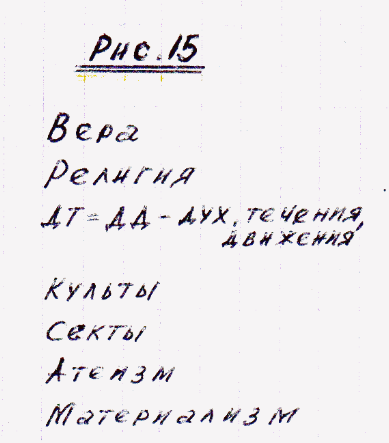 Рис.15
Вера
Религия
ДТ = ДД - дух. течения,
движения
Культы
Секты
Атеизм
Материализм